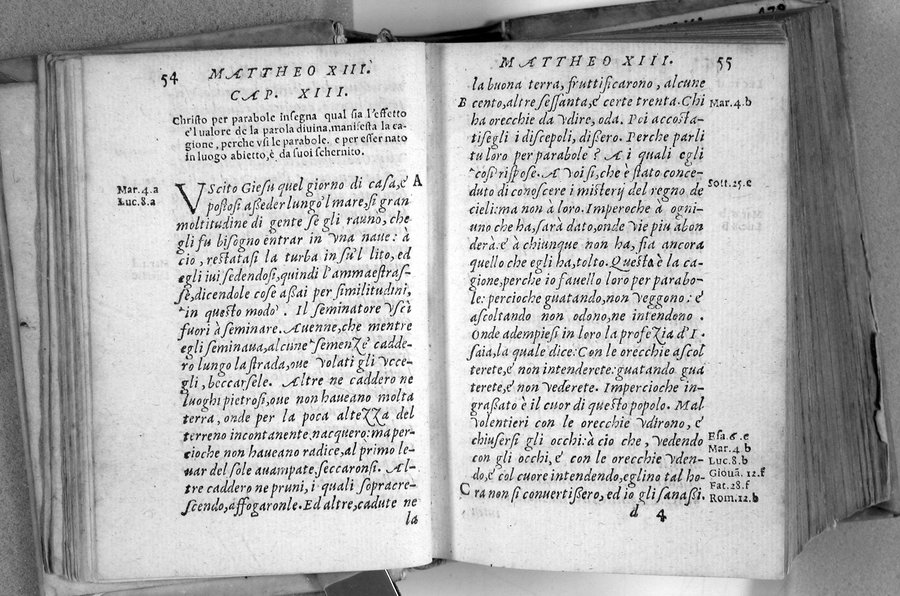 54 MATTHEO XIII.
CAP. XIII.
Christo per parabole insegna qual sia l'effetto
e'l ualore de la parola diuina, manifesta la ca-
gione, perche vsi le parabole. e per esser nato
in luogo abietto, è da suoi schernito.
Mar. 4. a
Luc. 8. a
VScito Giesu quel giorno di casa, e' A
postosi asseder lungo'l mare, si gran
moltitudine di gente se gli rauno, che
gli fu bisogno entrar in vna naue: à
cio, restatasi la turba in su'l lito, ed
egli iui sedendosi, quindi l'ammaestras-
se, dicendole cose assai per similitudini,
in questo modo. Il seminatore vsci
fuori à seminare. Auenne, che mentre
egli seminaua, alcune semenze cadde-
ro lungo la strada, oue volati gli vcce-
gli, beccarsele. Altre ne caddero ne
luoghi pietrosi, oue non haueano molta
terra, onde per la poca altezza del
terreno incontanente nacquero: ma per-
cioche non haueano radice, al primo le-
uar del sole auampate, seccaronsi. Al-
tre caddero ne pruni, i quali sopracre-
scendo, affogaronle. Ed altre, cadute ne
la
MATTHEO XIII. 55
la buona terra, fruttificarono, alcune
B cento, altre sessanta, e' certe trenta. Chi
ha orecchie da vdire, oda. Poi accosta-
tisegli i discepoli, dissero. Perche parli
tu loro per parabole? A i quali egli
cosi rispose. A voi si, che è stato conce-
duto di conoscere i misterij del regno de
cieli: ma non à loro. Imperoche à ogni-
uno che ha, sarà dato, onde vie piu abon
derà. e à chiunque non ha, fia ancora
quello che egli ha, tolto. Questa è la ca-
gione, perche io fauello loro per parabo-
le: percioche guatando, non veggono: e
ascoltando non odono, ne intendono.
Onde adempiesi in loro la profezia d'I-
saia, la quale dice: Con le orecchie ascol
terete, e non intenderete: guatando gua
terete, e non vederete. Impercioche in-
grassato è il cuor di questo popolo. Mal
volentieri con le orecchie vdirono, e
chiusersi gli occhi: à cio che, vedendo
con gli occhi, e con le orecchie vden-
do, e col cuore intendendo, eglino tal ho-
C ra non si convertissero, ed io gli sanassi.
d 4
Mar. 4. b
Sott. 25. e
Esa. 6. e
Mar. 4 b
Luc. 8. b
Giouā. 12. f
Fat. 28. f
Rom. 12. b